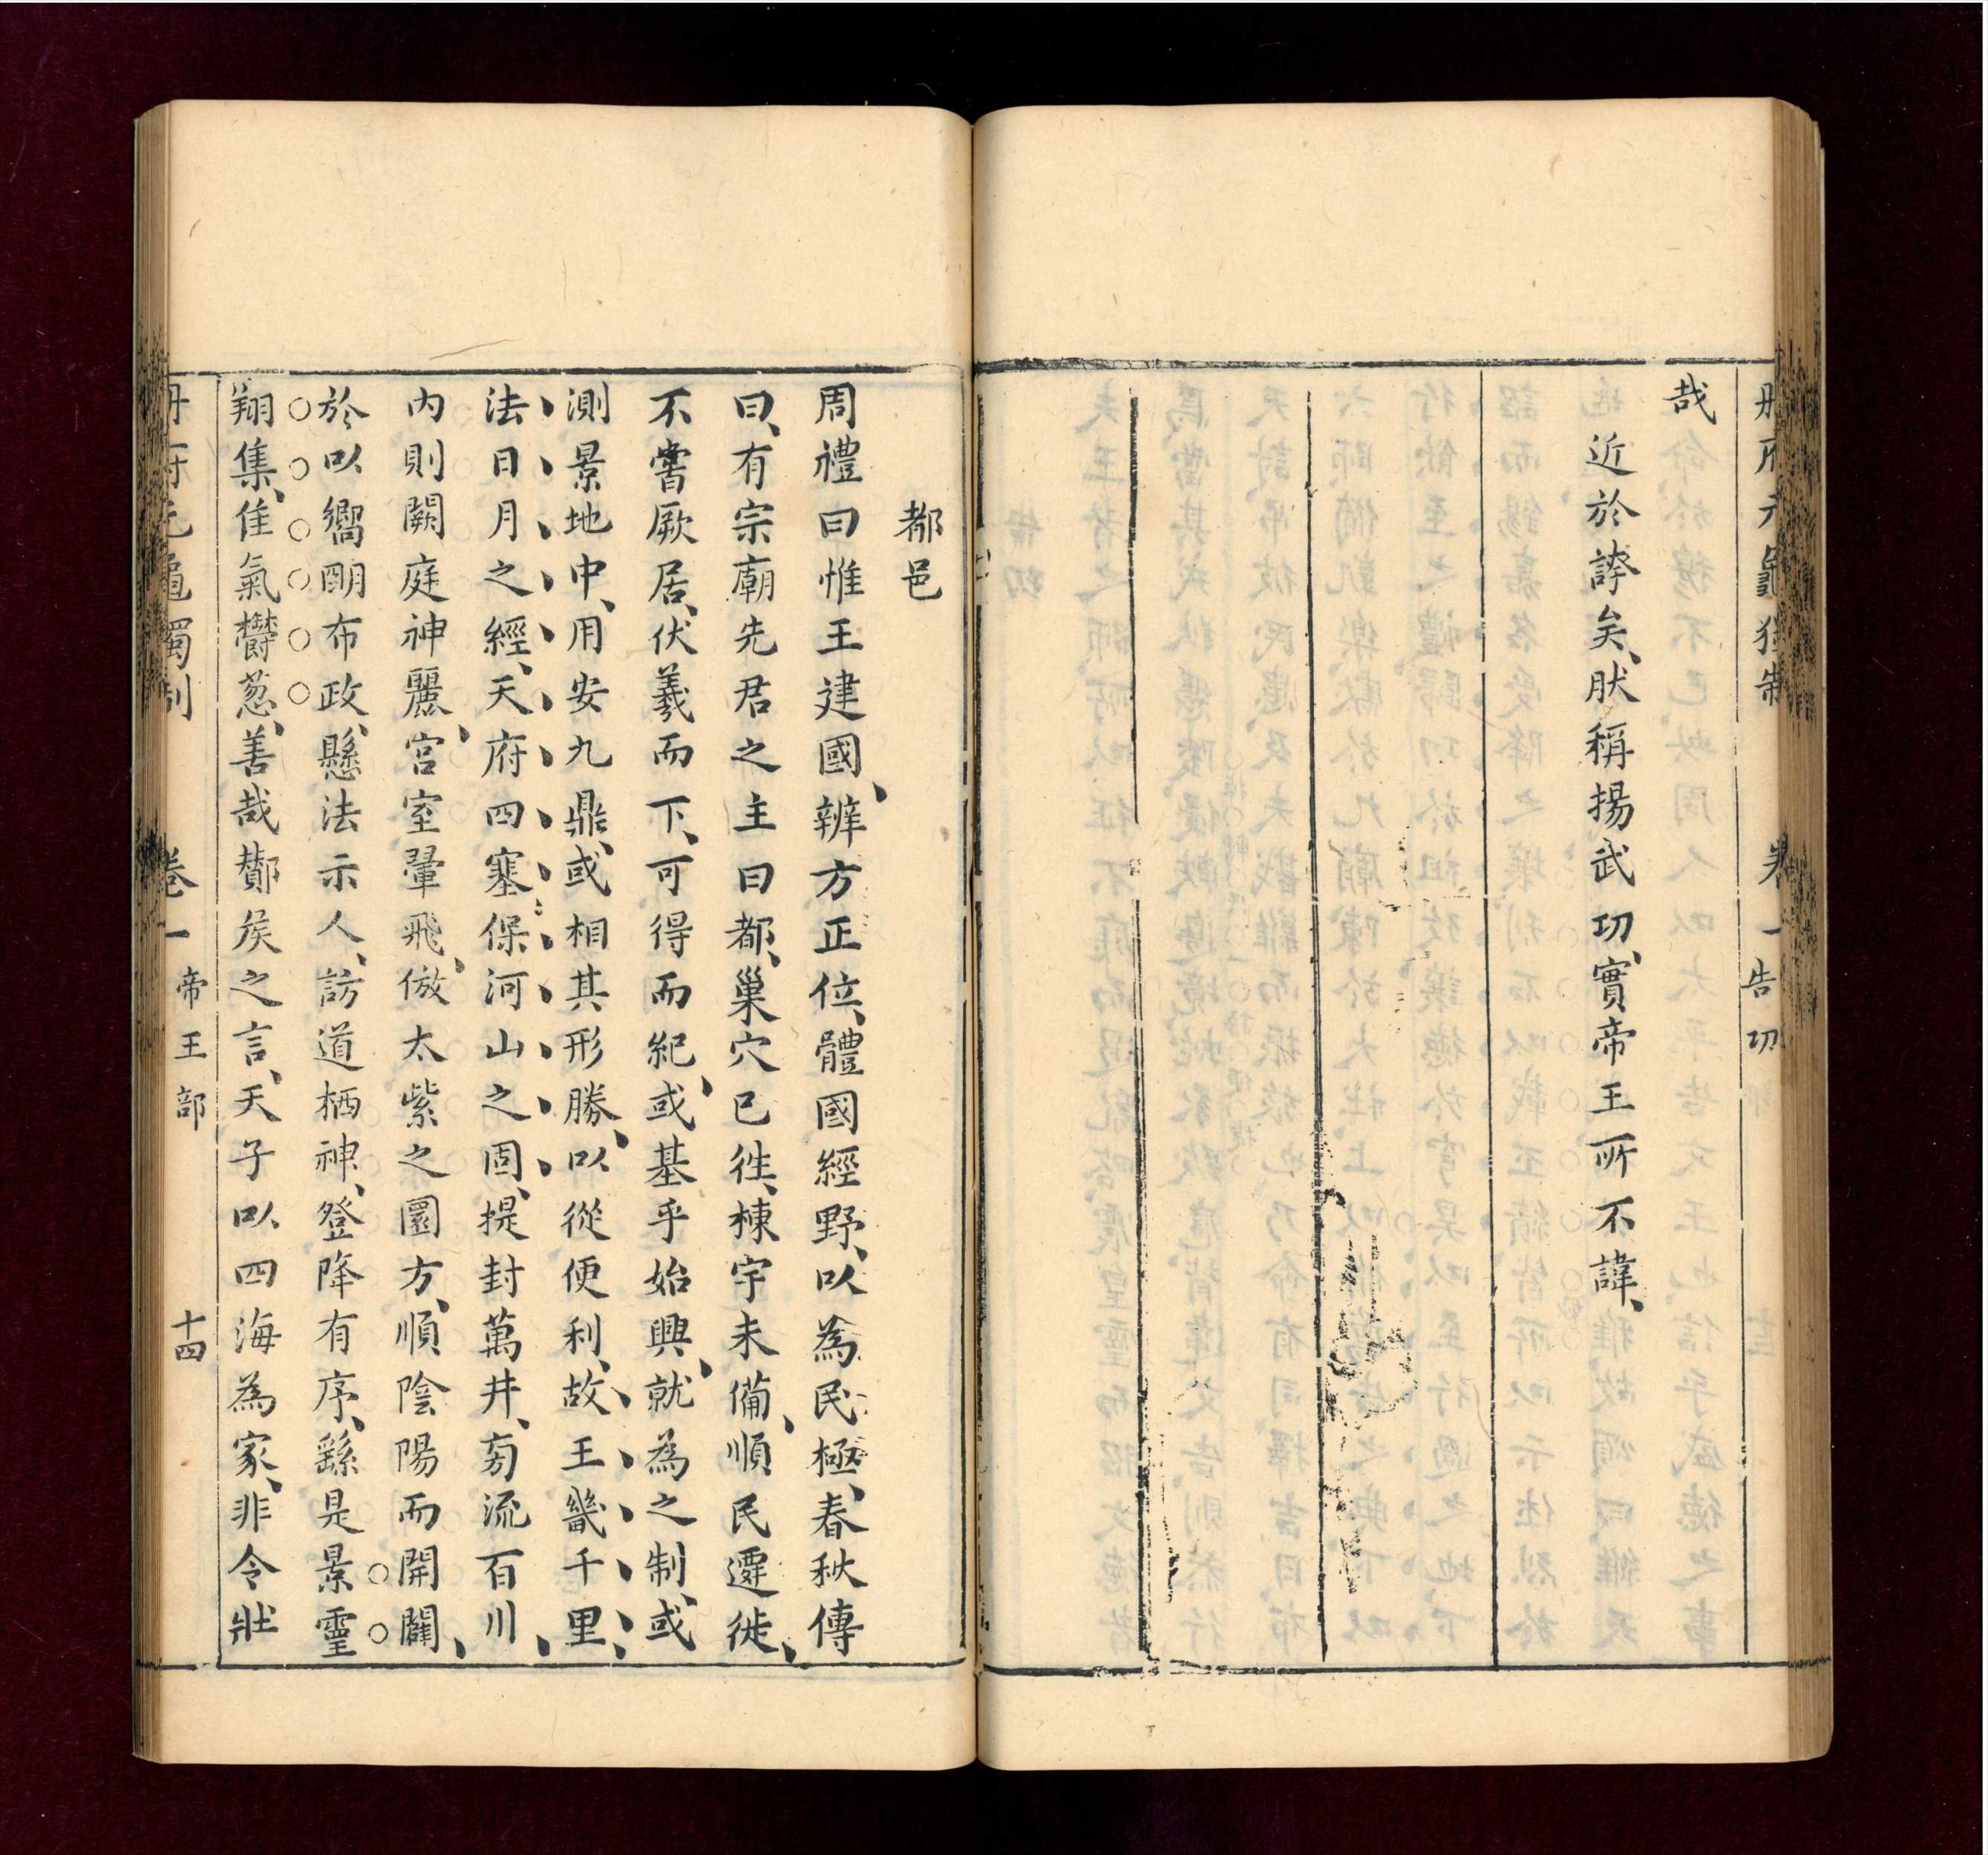 冊府元龜獨制 卷一 告功
哉
近於誇矣、肰稱揚武功、實帝王所不諱、
都邑
周禮曰惟王建國、辨方正位、體國經野、以為民極、春秋傳
曰、有宗廟先君之主曰都、巢穴已徃、棟宇未備、順民遷徙、
不甞厥居、伏羲而下、可得而紀、或基乎始興、就為之制、或
測景地中、用安九鼎、或相其形勝、以從便利、故王畿千里、
法日月之經、天府四塞、保河山之固、提封萬井、旁流百川、
內則闕庭神麗、宮室翬飛、倣太紫之圜方、順陰陽而開闢、
於以嚮明布政、懸法示人、訪道栖神、登降有序、繇是景靈
翔集、佳氣欝葱、善哉酇矦之言、天子以四海為家、非令壯
冊府元龜獨制 卷一 帝王部 十四